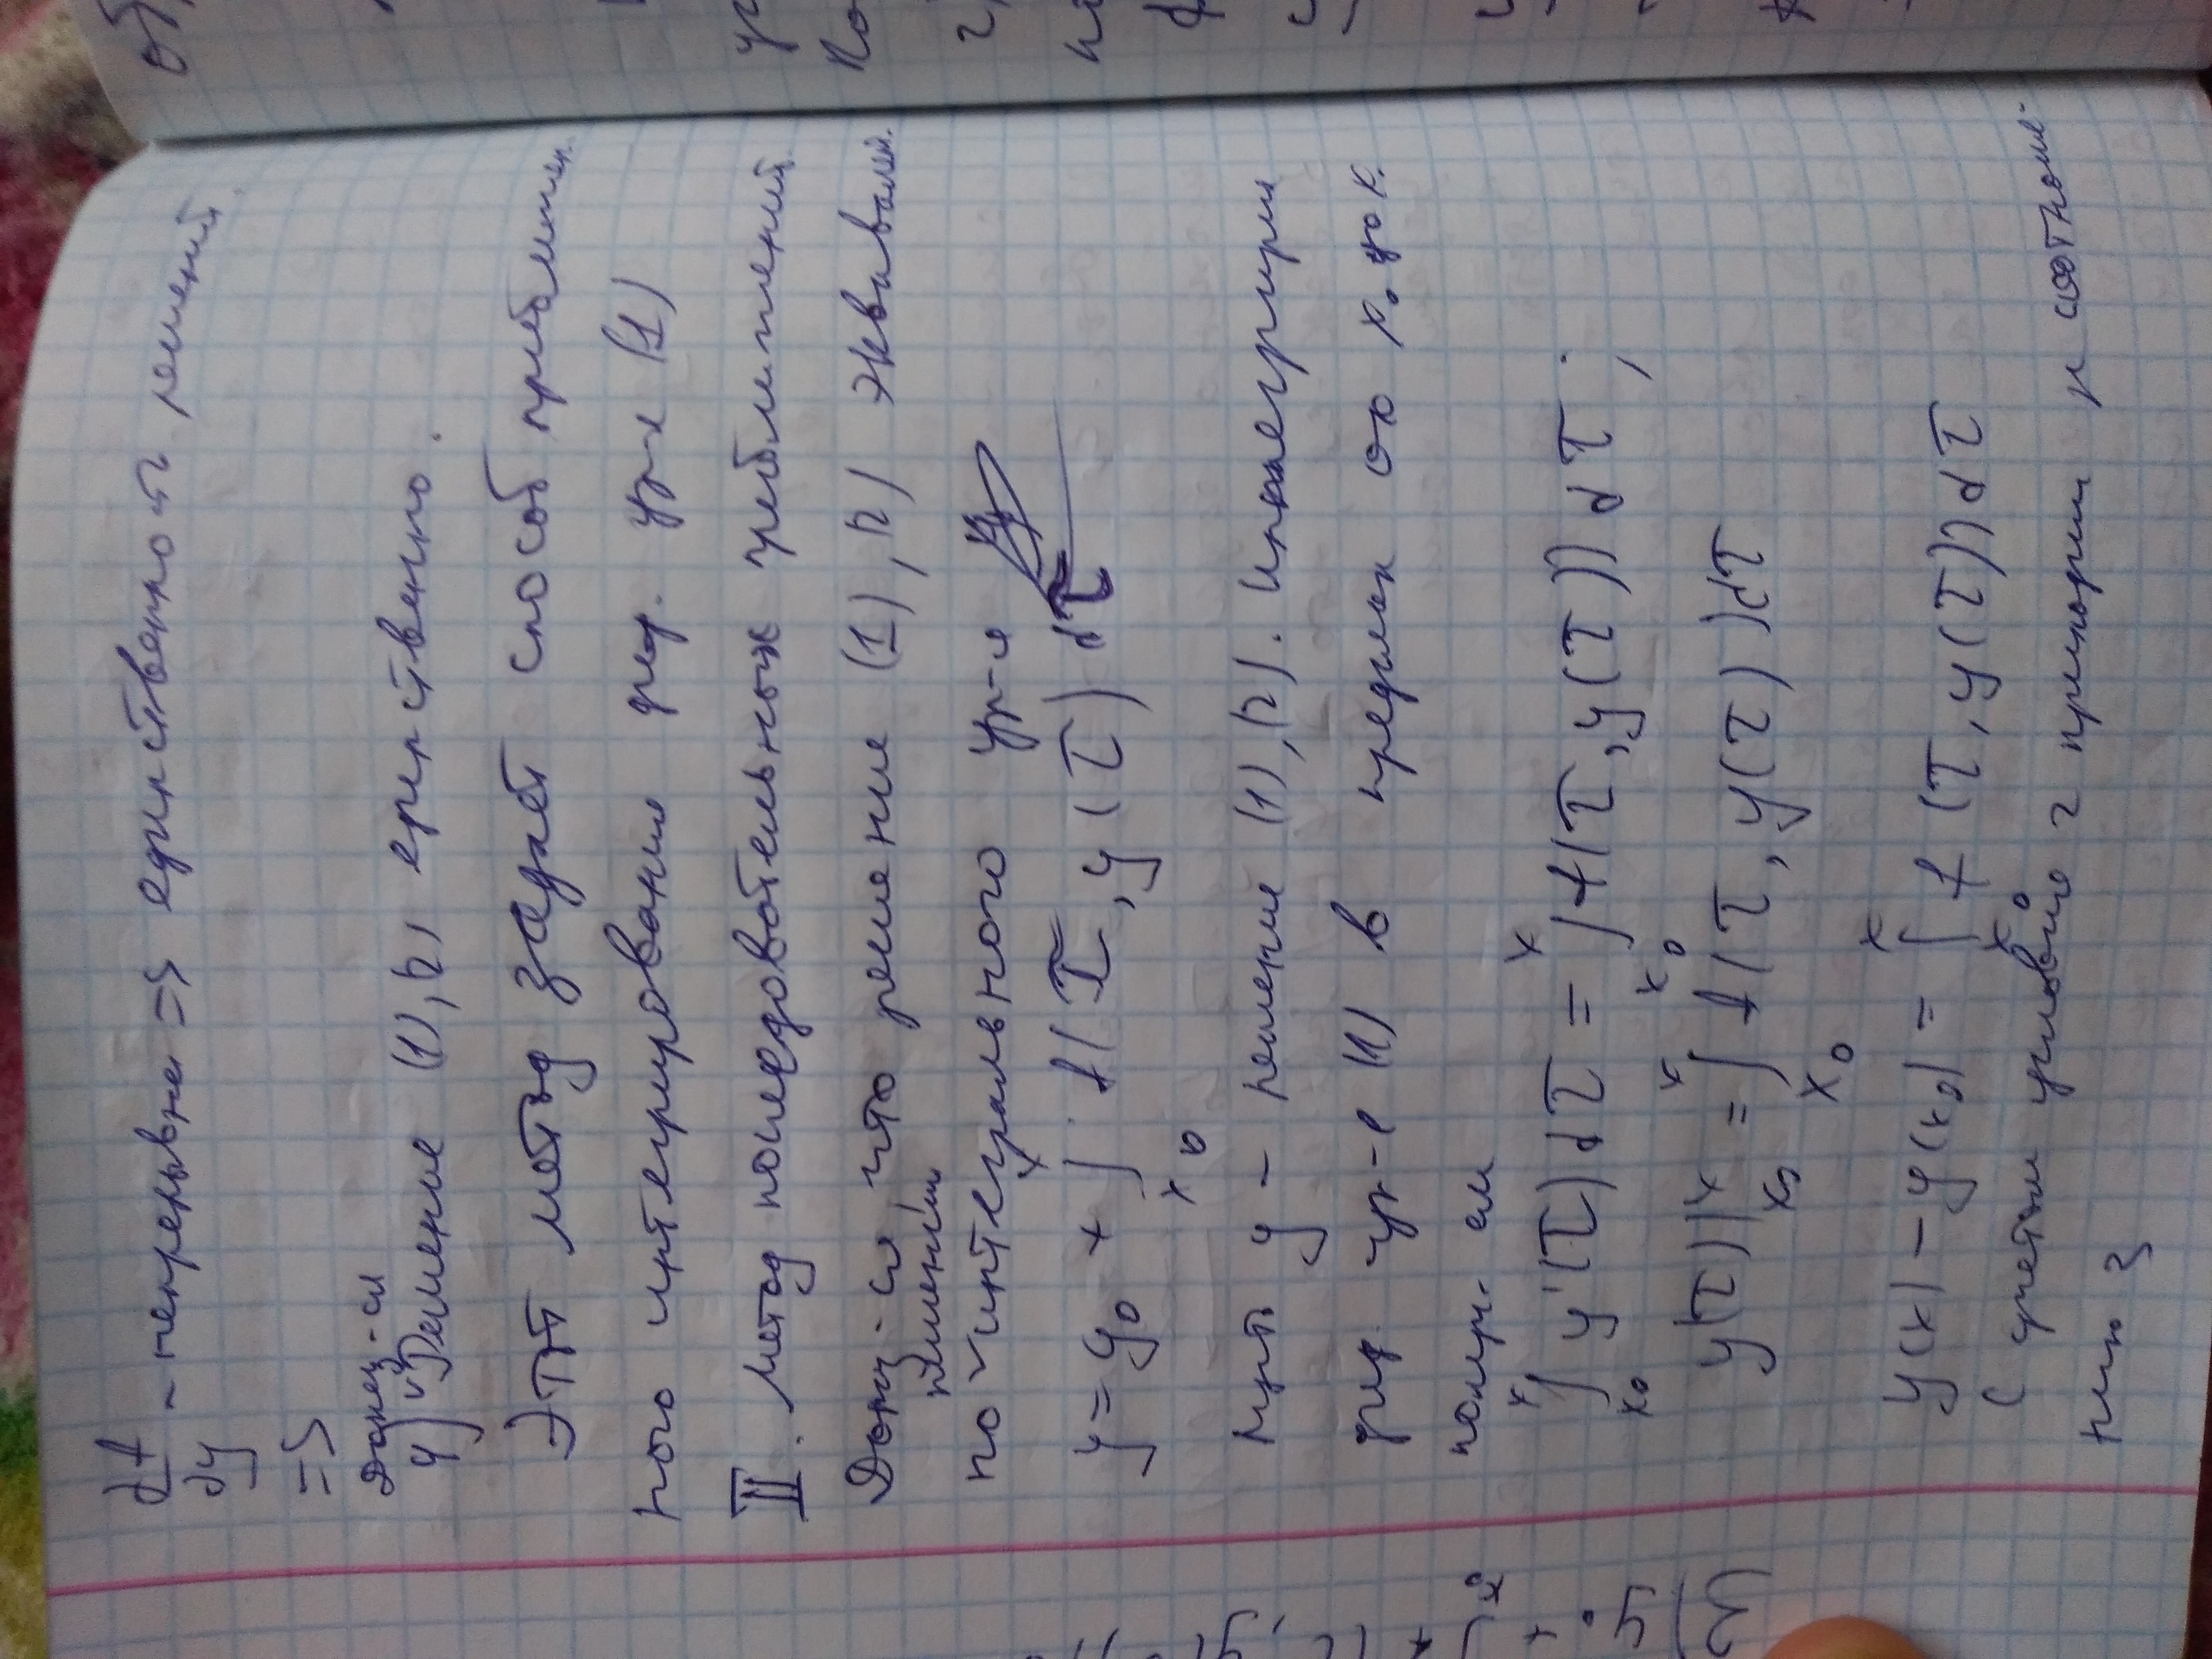 ∂f/∂y - непрерывна => единственность решений.
=>
Доказ-ся
4) Решение (1), (2) единственно.
Этот метод задаёт способ приближен-
ного интегрирования диф. ур-я (1)
II. Метод последовательных приближений.
Доказ-ся, что решение (1), (2) эквивалент-
решению
но интегрального ур-я
y = y₀ + ∫ₓ₀ˣ f(τ, y(τ) dτ
Пусть y - решение (1), (2). Интегрируя
диф. ур-е (1) в пределах от x₀ до x.
получ. ем
∫ₓ₀ˣ y'(τ) dτ = ∫ₓ₀ˣ f(τ, y(τ)) dτ ;
y(τ)|ₓ₀ˣ = ∫ₓ₀ˣ f(τ, y(τ)) dτ
y(x) - y(x₀) = ∫ₓ₀ˣ f (τ, y(τ)) dτ
С учетом условия 2 приходим к соотноше-
нию 3